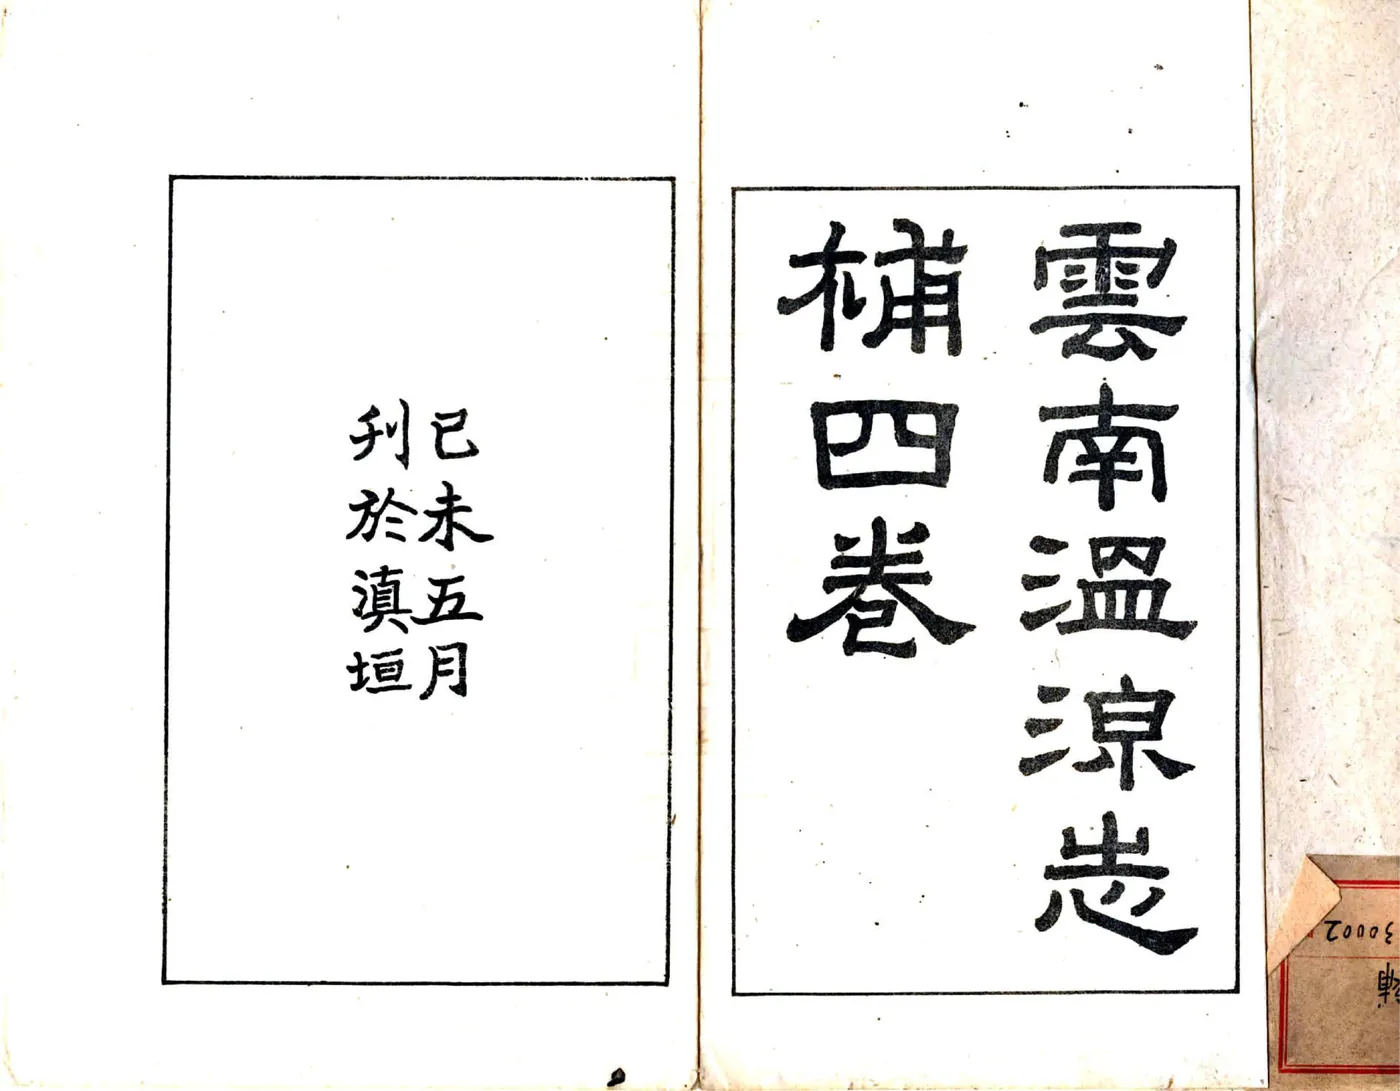 雲南溫涼志
補四卷
己未五月
刋於滇垣
30002